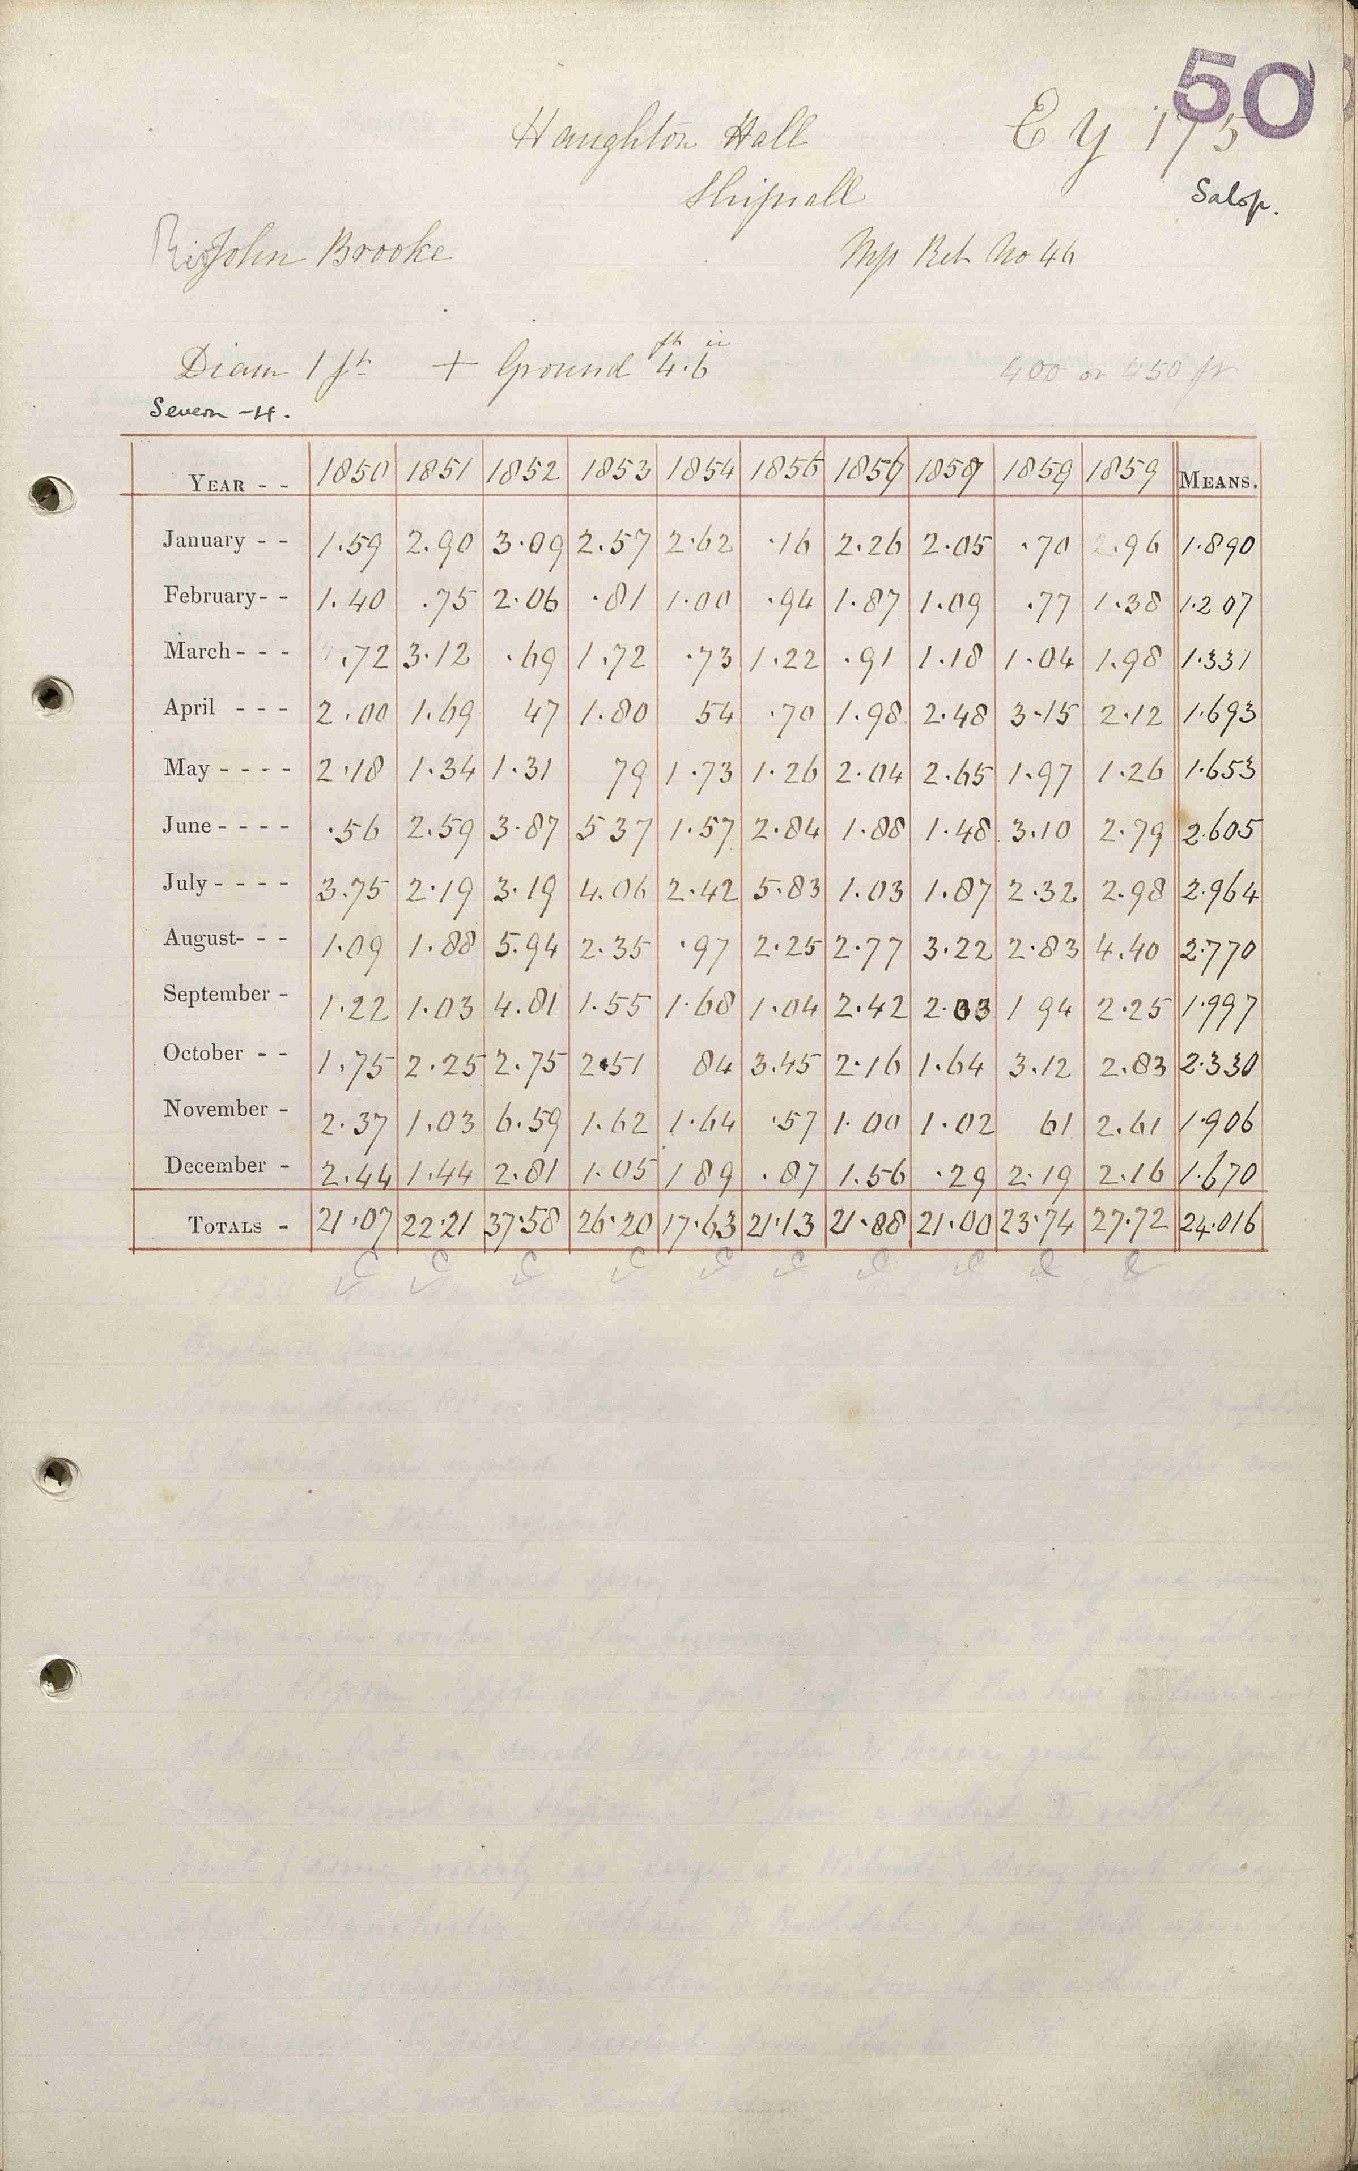 50
Haughton Hall
E y 175
Shifnall
Salop.
John Brooke
Mp Ret No 46
Diam 1 ft + Ground 4.6 ft in
400 or 450 ft
Severn -4.
YEAR - - 1850 1851 1852 1853 1854 1855 1856 1857 1858 1859 MEANS.
January - - 1.59 2.90 3.09 2.57 2.62 .16 2.26 2.05 .70 2.96 1.890
February - - 1.40 .75 2.06 .81 1.00 .94 1.87 1.09 .77 1.38 1.207
March - - - .72 3.12 .69 1.72 .73 1.22 .91 1.18 1.04 1.98 1.331
April - - - 2.00 1.69 47 1.80 54 .70 1.98 2.48 3.15 2.12 1.693
May - - - - 2.18 1.34 1.31 79 1.73 1.26 2.04 2.65 1.97 1.26 1.653
June - - - - .56 2.59 3.87 5 37 1.57 2.84 1.88 1.48 3.10 2.79 2.605
July - - - - 3.75 2.19 3.19 4.06 2.42 5.83 1.03 1.87 2.32 2.98 2.964
August - - - 1.09 1.88 5.94 2.35 .97 2.25 2.77 3.22 2.83 4.40 2.770
September - 1.22 1.03 4.81 1.55 1.68 1.04 2.42 2.03 1 94 2.25 1.997
October - - 1.75 2.25 2.75 2.51 84 3.45 2.16 1.64 3.12 2.83 2.330
November - 2.37 1.03 6.59 1.62 1.64 .57 1.00 1.02 61 2.61 1.906
December - 2.44 1.44 2.81 1.05 1 89 .87 1.56 .29 2.19 2.16 1.670
TOTALS - 21.07 22.21 37.58 26.20 17.63 21.13 21.88 21.00 23.74 27.72 24.016